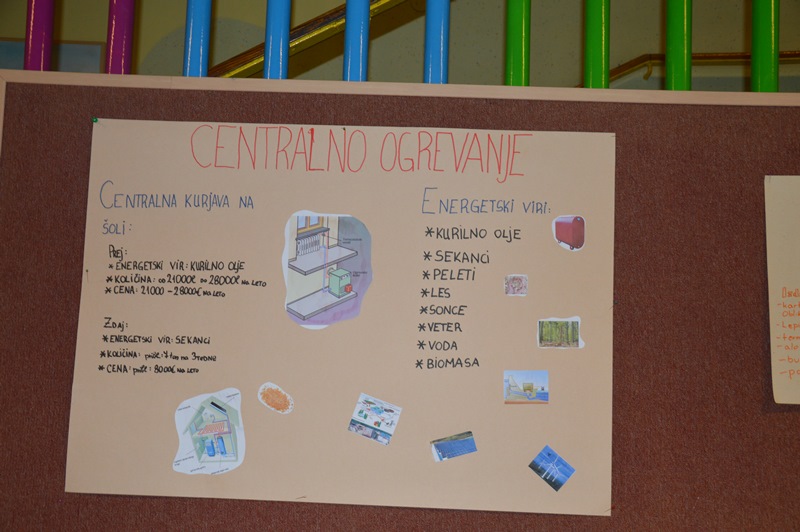 CENTRALNO OGREVANJE
CENTRALNA KURJAVA NA
ŠOLI:
PREJ:
* ENERGETSKI VIR: KURILNO OLJE
* KOLIČINA: OD 21000€ DO 28000€ NA LETO
* CENA: 21000 - 28000€ NA LETO
ZDAJ:
* ENERGETSKI VIR: SEKANCI
* KOLIČINA: 7 na 3 tedne
* CENA: 8000€ NA LETO
ENERGETSKI VIRI:
* KURILNO OLJE
* SEKANCI
* PELETI
* LES
* SONCE
* VETER
* VODA
* BIOMASA